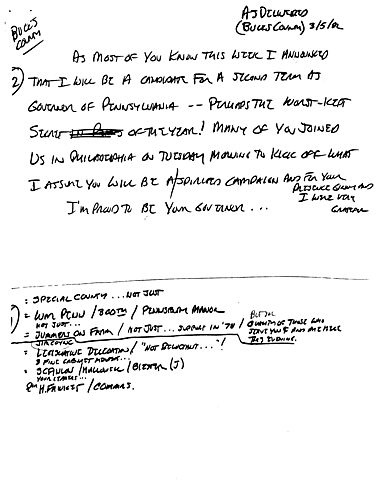 BUCKS
COUNTY
AS DELIVERED
(BUCKS COUNTY) 3/5/82
AS MOST OF YOU KNOW THIS WEEK I ANNOUNCED
2) THAT I WILL BE A CANDIDATE FOR A SECOND TERM AS
GOVERNOR OF PENNSYLVANIA -- PERHAPS THE WORST-KEPT
SECRET OF THE YEAR! MANY OF YOU JOINED
US IN PHILADELPHIA ON TUESDAY MORNING TO KICK OFF WHAT
I ASSURE YOU WILL BE A SPIRITED CAMPAIGN AND FOR YOUR
PRESENCE THERE AND
I WERE VERY
GRATEFUL
I'M PROUD TO BE YOUR GOVERNOR ...
: SPECIAL COUNTY ... NOT JUST
1) = WM PENN / 300TH / PENNSBURY MANOR
NOT JUST ...
= SUMMERS ON FARM / NOT JUST ... SUPPORT IN '78 /
BUT FOR
QUANTITY OF THOSE WHO
SERVE YOU AND ARE HERE
THIS EVENING.
= LEGISLATIVE DELEGATION / "NOT RELUCTANT ..."!
3 FINE CABINET MEMBER...
= SCANLON / / BIESTER (J)
YOUR LEADERS ...
H. FAWKES / COMMRS.